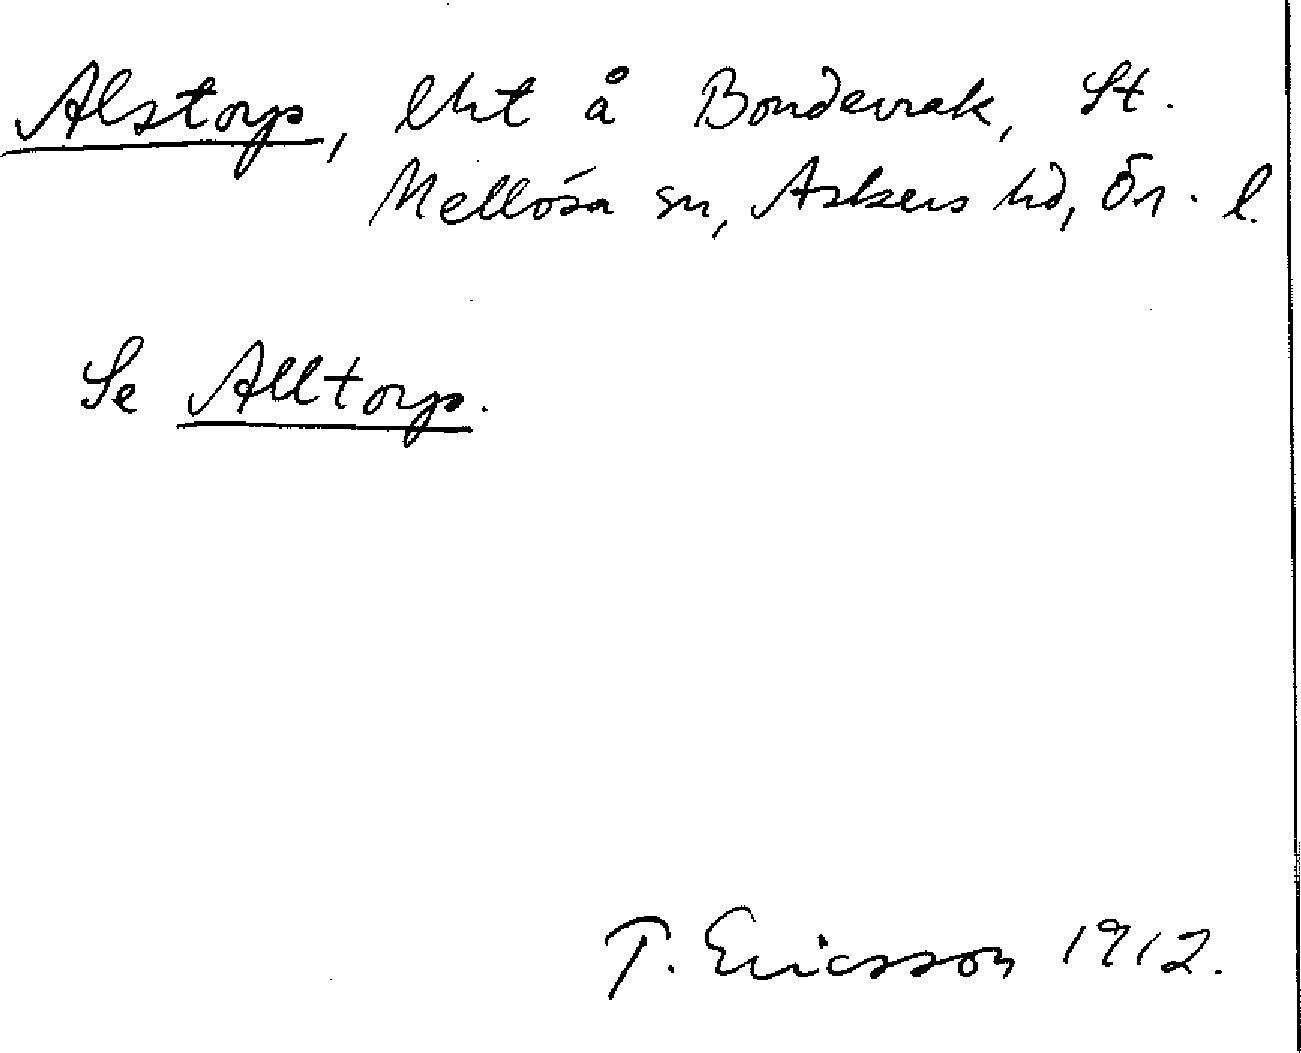 Alstorp, lht å Bondevrak, St.
Mellösa sn, Askers hd, Ör. l.
Se Alltorp.
T. Ericsson 1912.